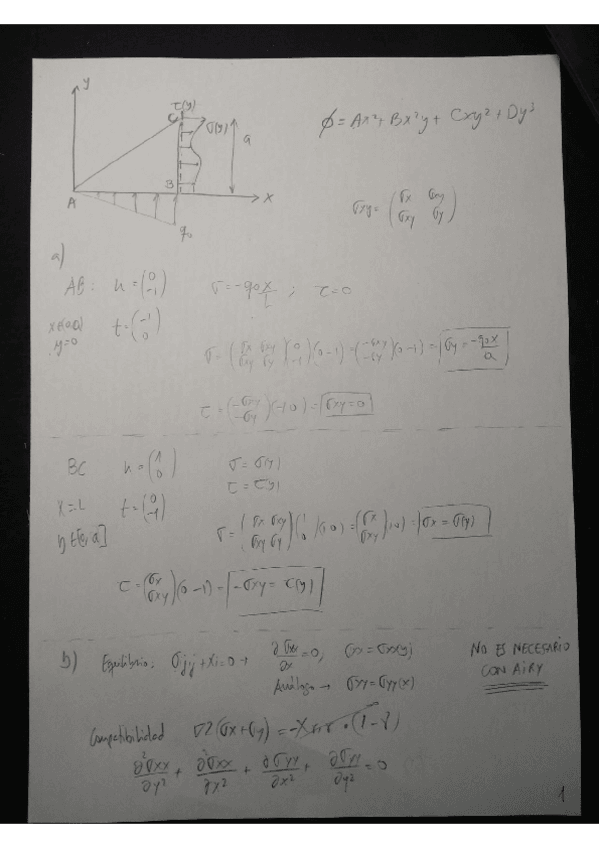 y
τ(y)
C
σ(y)
a
B
A
x
q₀
ϕ = Ax³ + Bx²y + Cxy² + Dy³
σxy = (σx σxy
σxy σy)
a)
AB: n = (0
-1) σ = -q₀x/L ; τ=0
y=0 t = (-1
0)
σ = (σx σxy
σxy σy)(0
-1)(0 -1) = (-σxy
-σy)(0 -1) = σy = -q₀x/a
τ = (-σxy
-σy)(-1 0) = σxy = 0
BC n = (1
0) σ = σ(y)
τ = τ(y)
x=L t = (0
-1)
y ∈ [0, a] σ = (σx σxy
σxy σy)(1
0)(1 0) = (σx
σxy)(1 0) = σx = σ(y)
τ = (σx
σxy)(0 -1) = -σxy = τ(y)
b) Equilibrio: σij,j + Xi = 0 → ∂σxx/∂x = 0, σx = σxx(y)
Análoga → σyy = σyy(x)
NO ES NECESARIO
CON AIRY
Compatibilidad ∇²(σx + σy) =
∂²σxx/∂y² + ∂²σxx/∂x² + ∂σyy/∂x² + ∂σyy/∂y² = 0
1